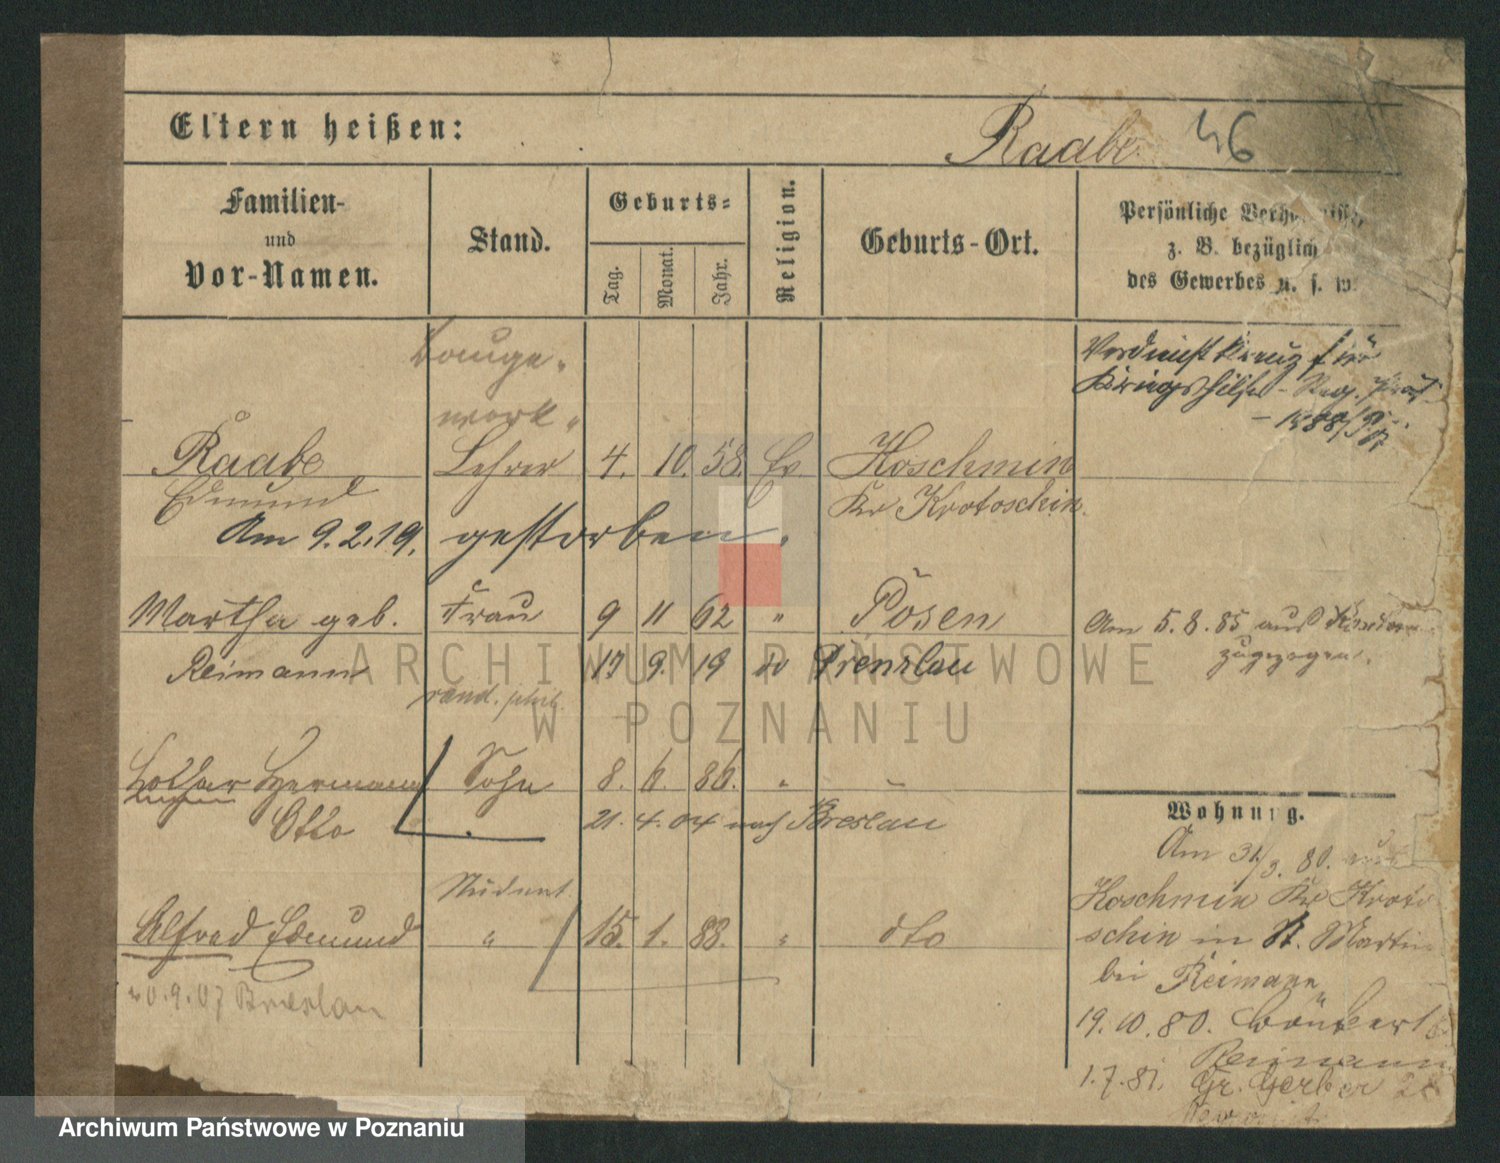 Eltern heißen:
Raabe 46
Familien-
und
Vor-Namen.
Stand.
Geburts-
Tag.
Monat.
Jahr.
Religion.
Geburts-Ort.
Persönliche
z. B. bezüglich
des Gewerbes u. s. w.
Bauge-
werk-
Verdienstkreuz für
Kriegshilfe
Raabe Lehrer 4. 10. 58. Ev Koschmin
Edmund Kr Krotoschin
Am 9.2.19. gestorben.
Martha geb. Frau 9 11 62 " Posen
Am 5.8.85 aus
zugezogen.
Reimann 17 9. 19 Prenzlau
cand. phil.
Lothar Hermann Sohn 8. 6. 86. "
Otto 21. 4. 04 nach Breslau
Student
Alfred Edmund " 15. 1. 88. " dto
9.07 Breslau
Wohnung.
Am 31/3. 80. aus
Koschmin Kr Kroto
schin in St. Martin
bei Reimann
19. 10. 80.
Reimann
1.7.81. Gr. Gerber
ARCHIWUM PAŃSTWOWE
W POZNANIU
Archiwum Państwowe w Poznaniu